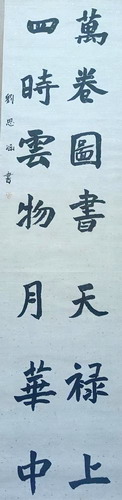 萬卷圖書天禄上
四時雲物月華中
劉思涵書